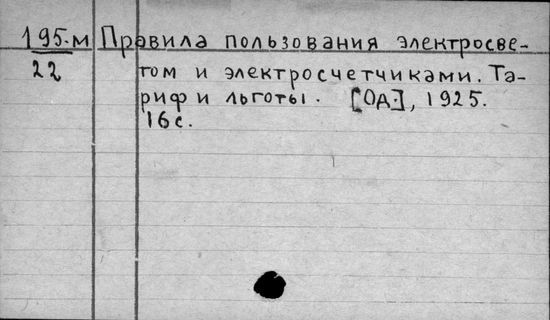 195.м Правила пользования электросве-
22 том и электросчетчиками. Та-
риф и льготы. [Од.], 1925.
16 с.